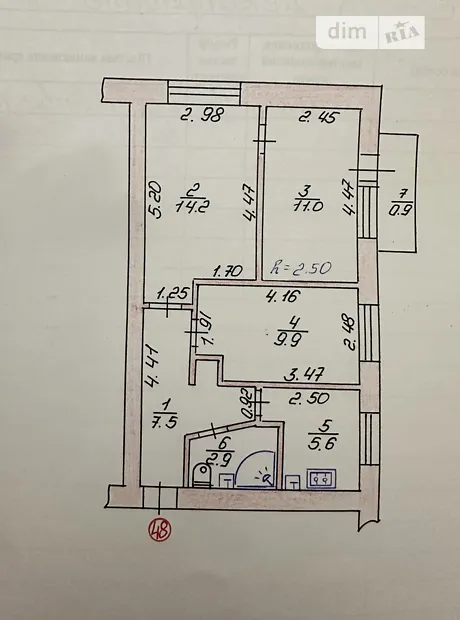 dim RIA
2.98
2.45
5.20
2
14.2
4.47
3
11.0
4.47
7
0.9
1.70
h=2.50
1.25
4.16
1.91
4
9.9
2.48
4.41
3.47
2.50
0.92
1
7.5
5
5.6
6
2.9
48